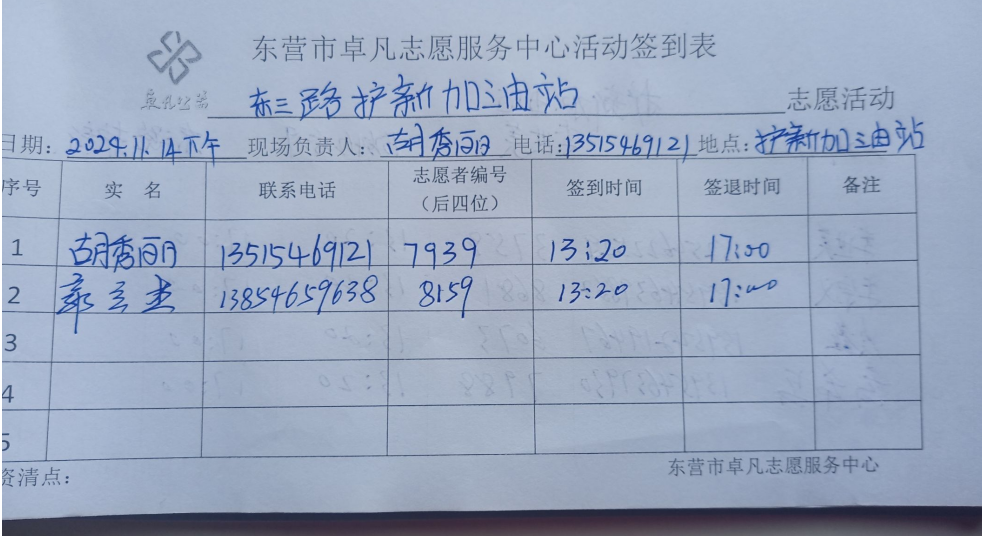 东营市卓凡志愿服务中心活动签到表
卓凡公益
东三路护新加油站 志愿活动
日期: 2024.11.14下午 现场负责人: 胡秀丽 电话:13515469121 地点: 护新加油站
序号 实 名 联系电话 志愿者编号（后四位） 签到时间 签退时间 备注
1 胡秀丽 13515469121 7939 13:20 17:00
2 13854659638 8159 13:20 17:00
3
4
5
资清点：
东营市卓凡志愿服务中心